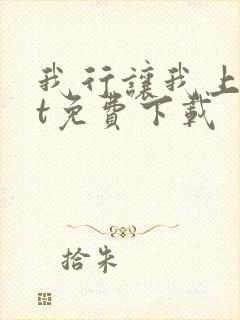 我行讓我上
t免費下載
拾朱